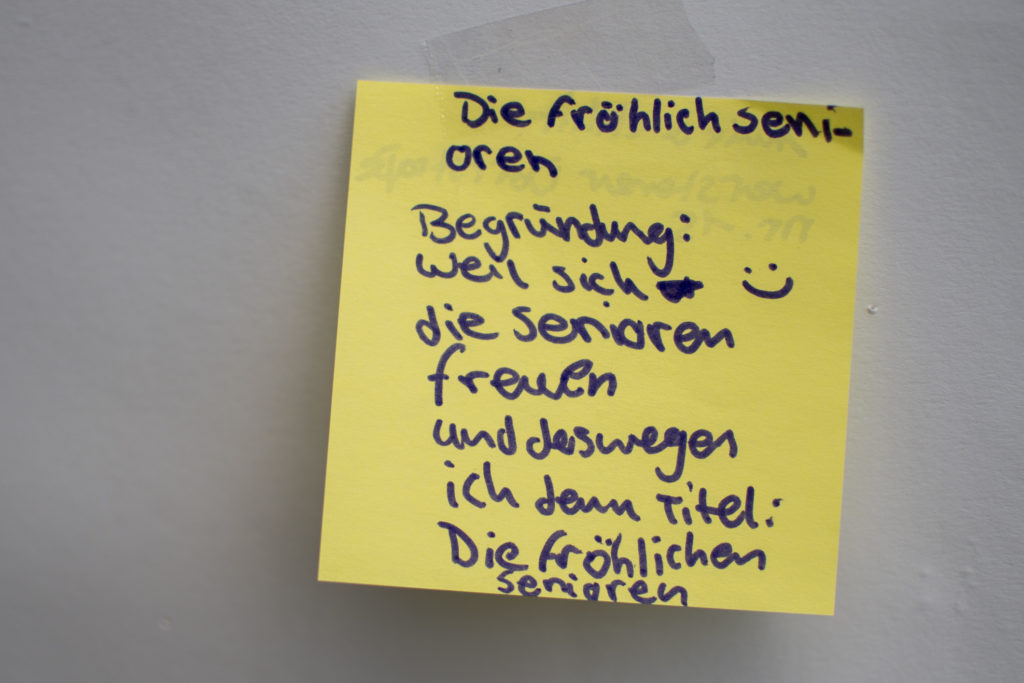 Die fröhlich seni-
oren
Begründung:
weil sich
die senioren
freuen
und deswegen
ich denn Titel:
Die fröhlichen
senioren